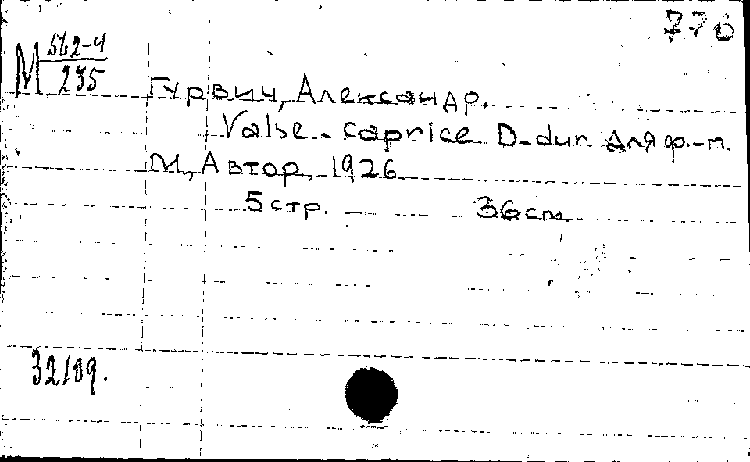 770
М 562-4
235
Гурвич, Александр.
Valse-caprice D-dur для ф.-п.
М, Автор, 1926
5 стр. 36 см
32/109.